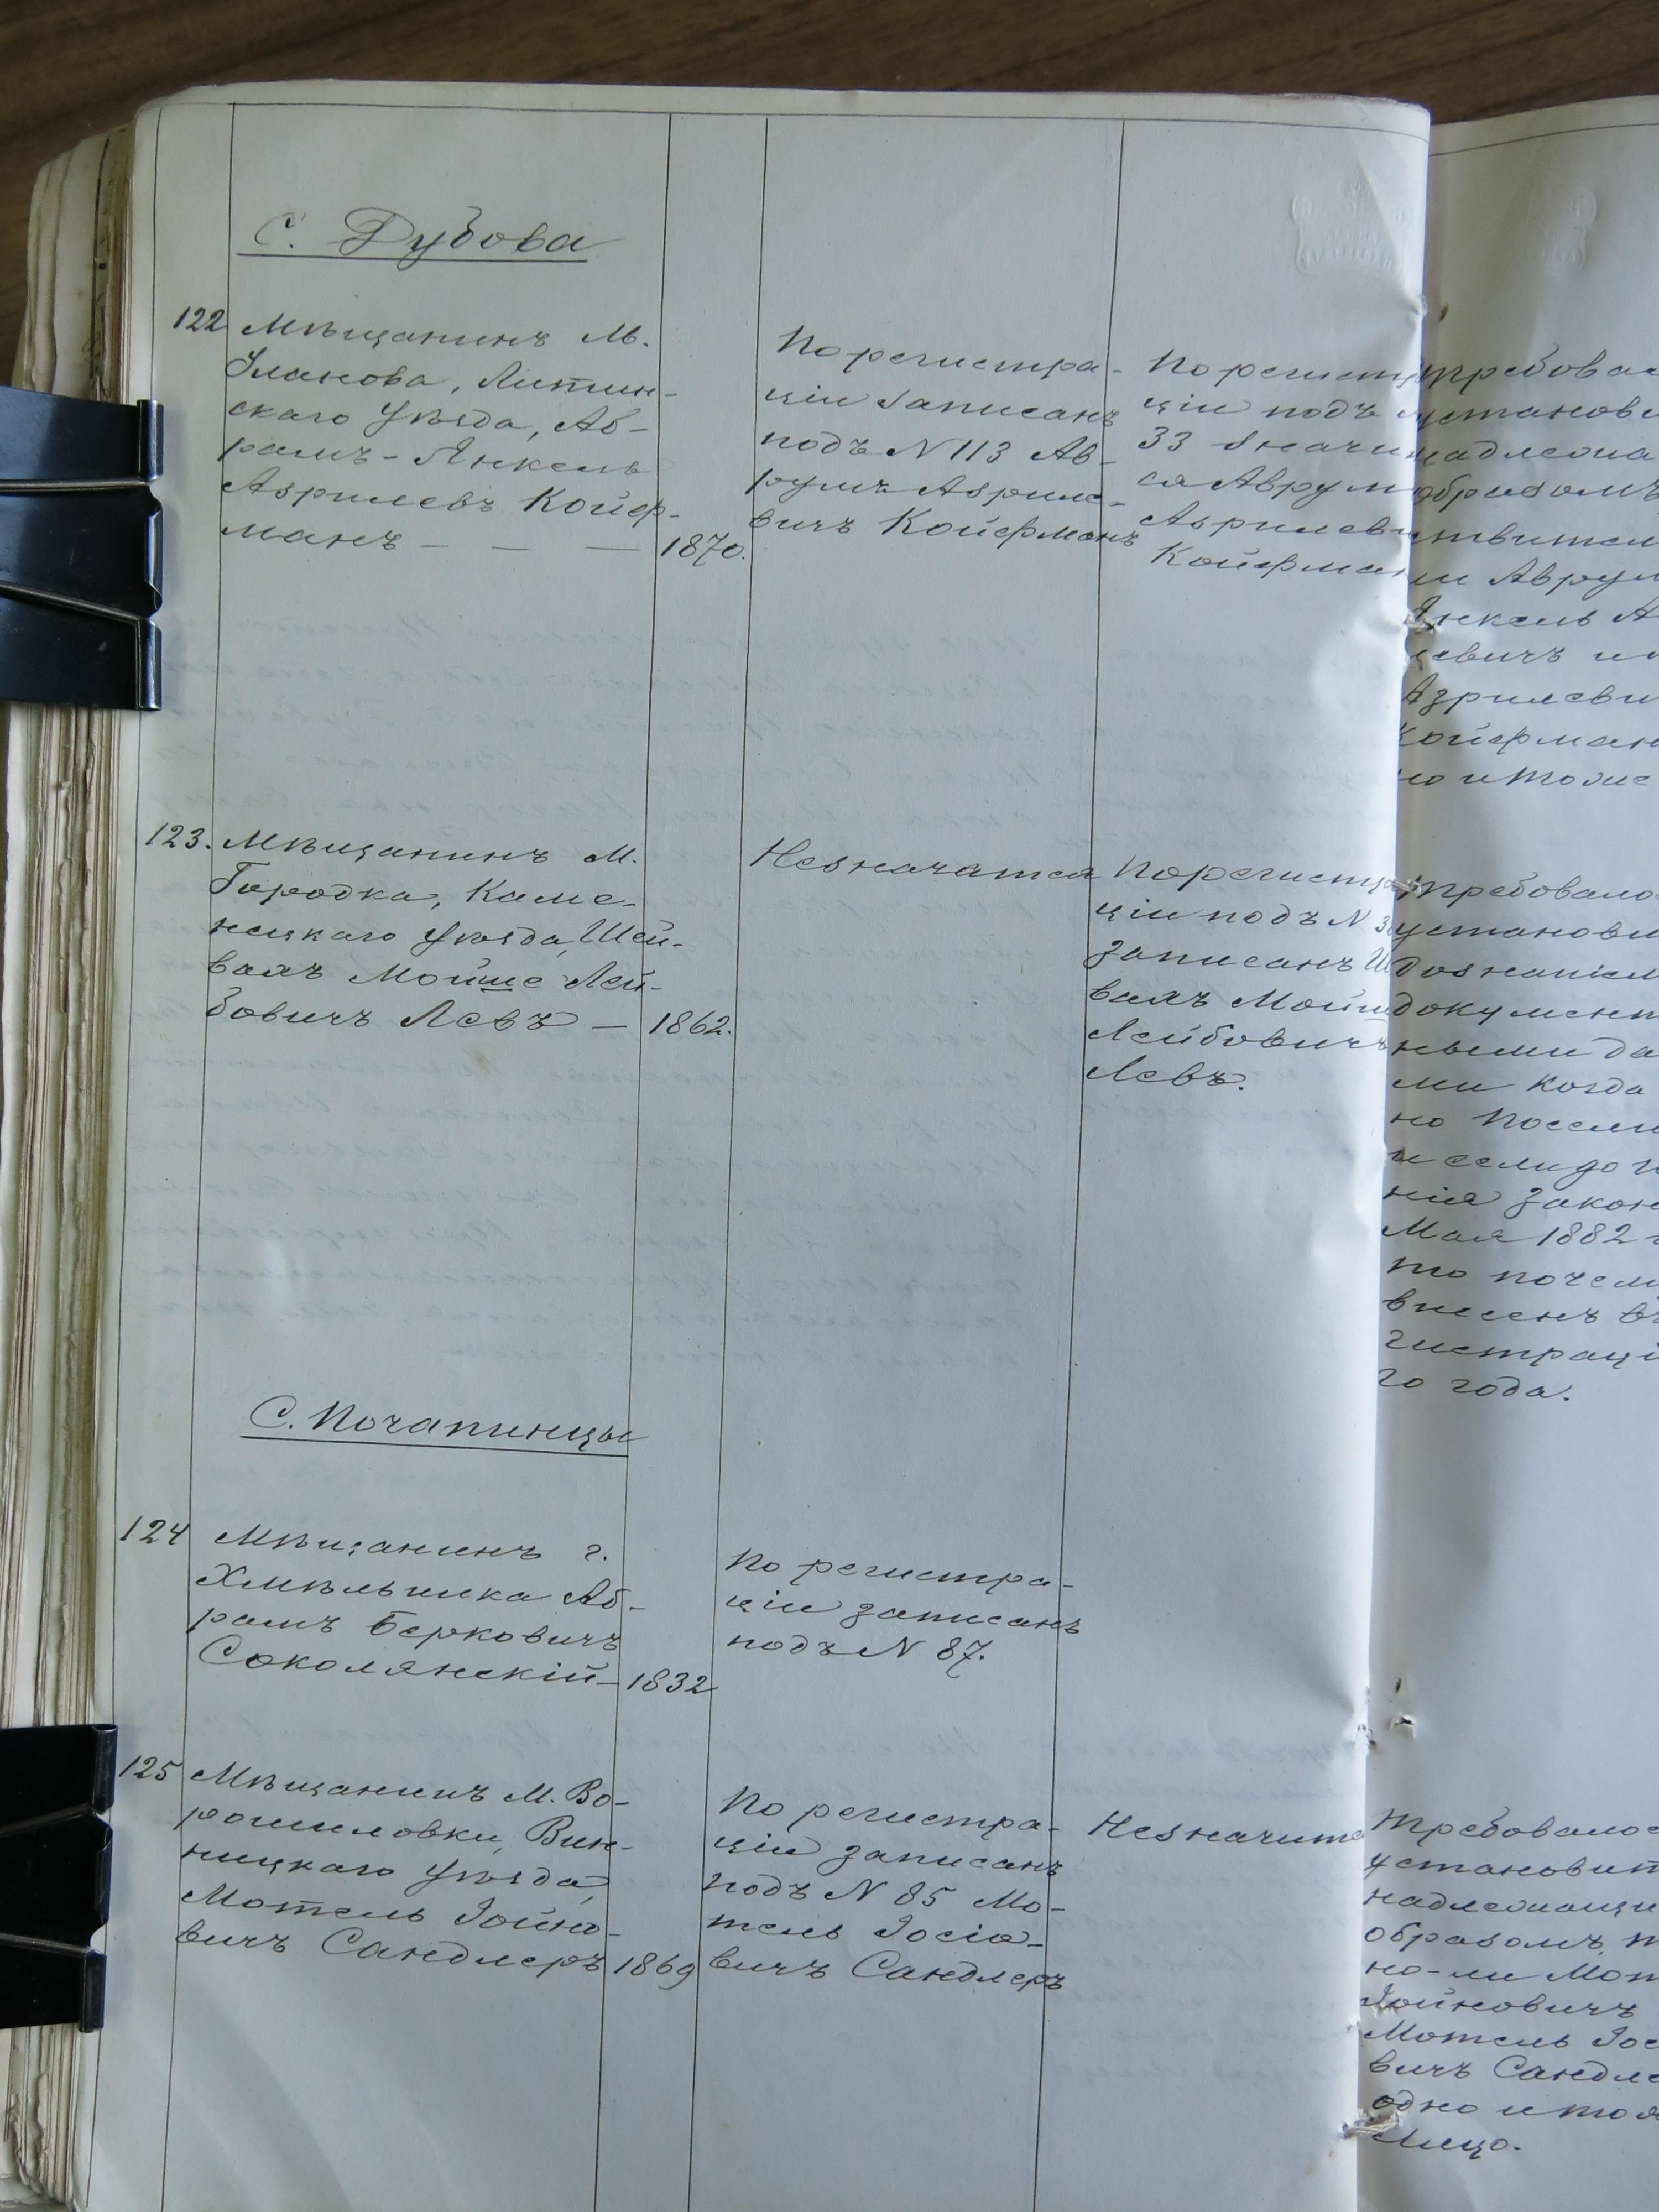 С. Дубова
122 Мѣщанинъ М.
Уланова, Литин-
скаго Уѣзда, Аб-
рамъ-Янкель
Азрилевъ Койф-
манъ — — — 1870.
По регистра-
ціи записанъ
подъ N 113 Ав-
румъ Азриле-
вичъ Койфманъ
По регистр
ціи подъ
33 значи
ся Аврум
Азрилев
Койфма
требова
установи
надлежа
образомъ
ли Аврум
Янкель А
левичъ и
Азрилеви
Койфман
но и тоже
123. Мѣщанинъ М.
Городка, Каме-
нецкаго Уѣзда, Шей-
валъ Мойше Лей-
бовичъ Левъ — 1862.
Незначатся
По регистра
ціи подъ N 3
записанъ Ш
валъ Мойш
Лейбовичъ
Левъ.
требовало
установи
дознаніем
документ
ными да
ми когда
но посели
и если до и
нія закон
Мая 1882 г
то почему
внесенъ въ
гистраці
го года.
С. Почапинцы
124 Мѣщанинъ г.
Хмѣльника Аб-
рамъ Берковичъ
Соколянскій — 1832
По регистра-
ціи записанъ
подъ N 87.
125 Мѣщанинъ М. Во-
рошиловки, Вин-
ницкаго Уѣзда,
Мотель Іойно-
вичъ Сандлеръ 1869
По регистра-
ціи записанъ
подъ N 85 Мо-
тель Іосіо-
вичъ Сандлеръ
Незначитс
требовало
установит
надлежащи
образомъ, т
но-ли Мот
Іойновичъ
Мотель Іос
вичъ Сандле
одно и тож
лицо.